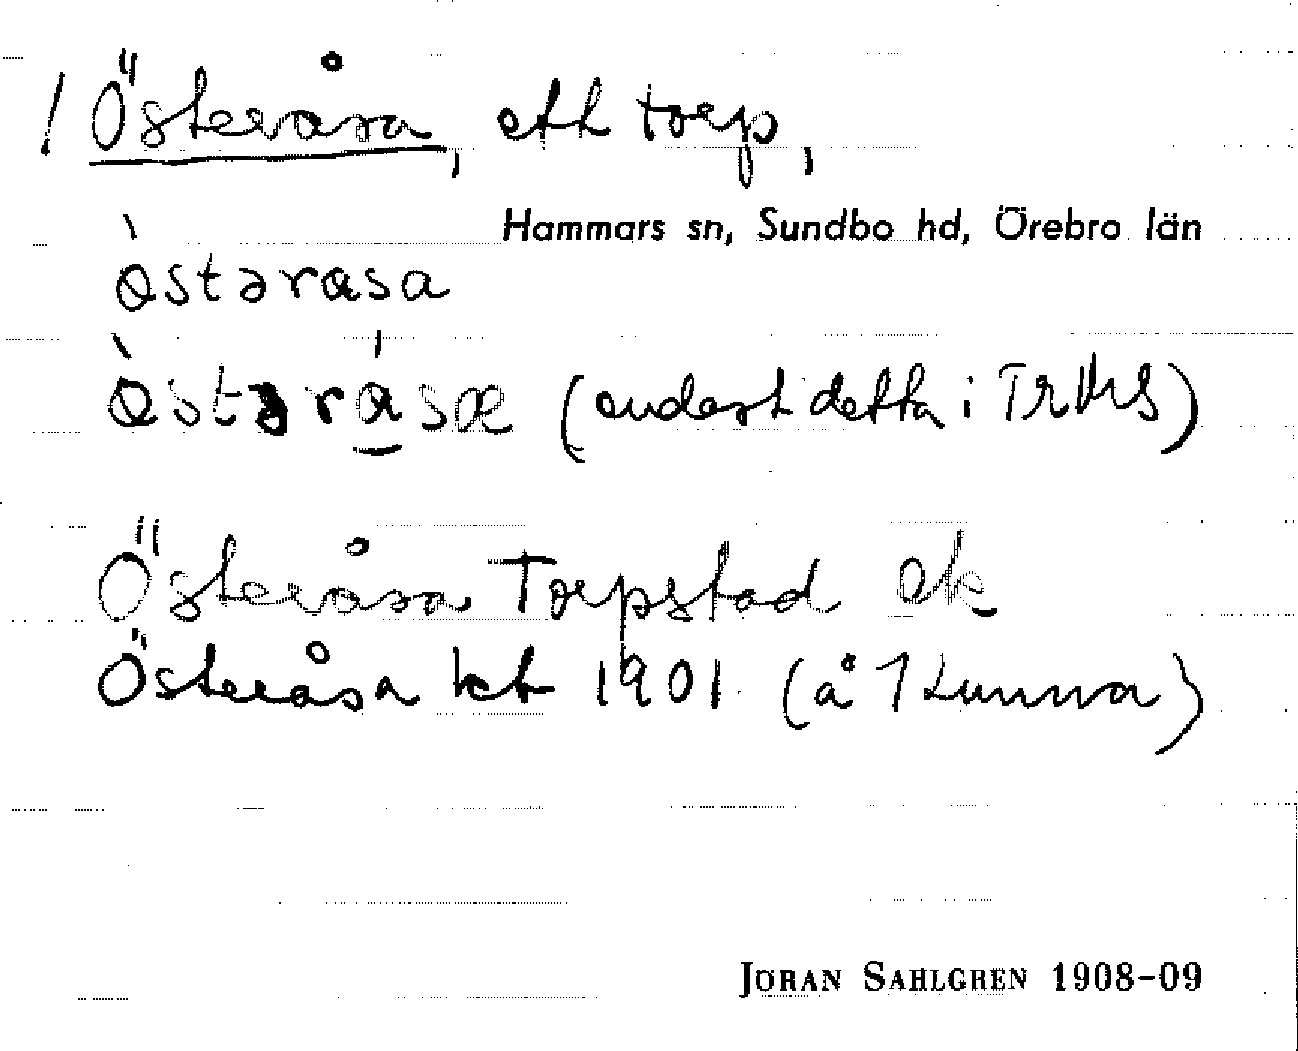 / Österåsa, ett torp,
Hammars sn, Sundbo hd, Örebro län
ò̀stərɑsa
ò̀stərɑ́sæ (endast detta i TrHS)
Österåsa Torpstad ek
Österåsa kt 1901 (å 1 Lunna)
JÖRAN SAHLGREN 1908-09